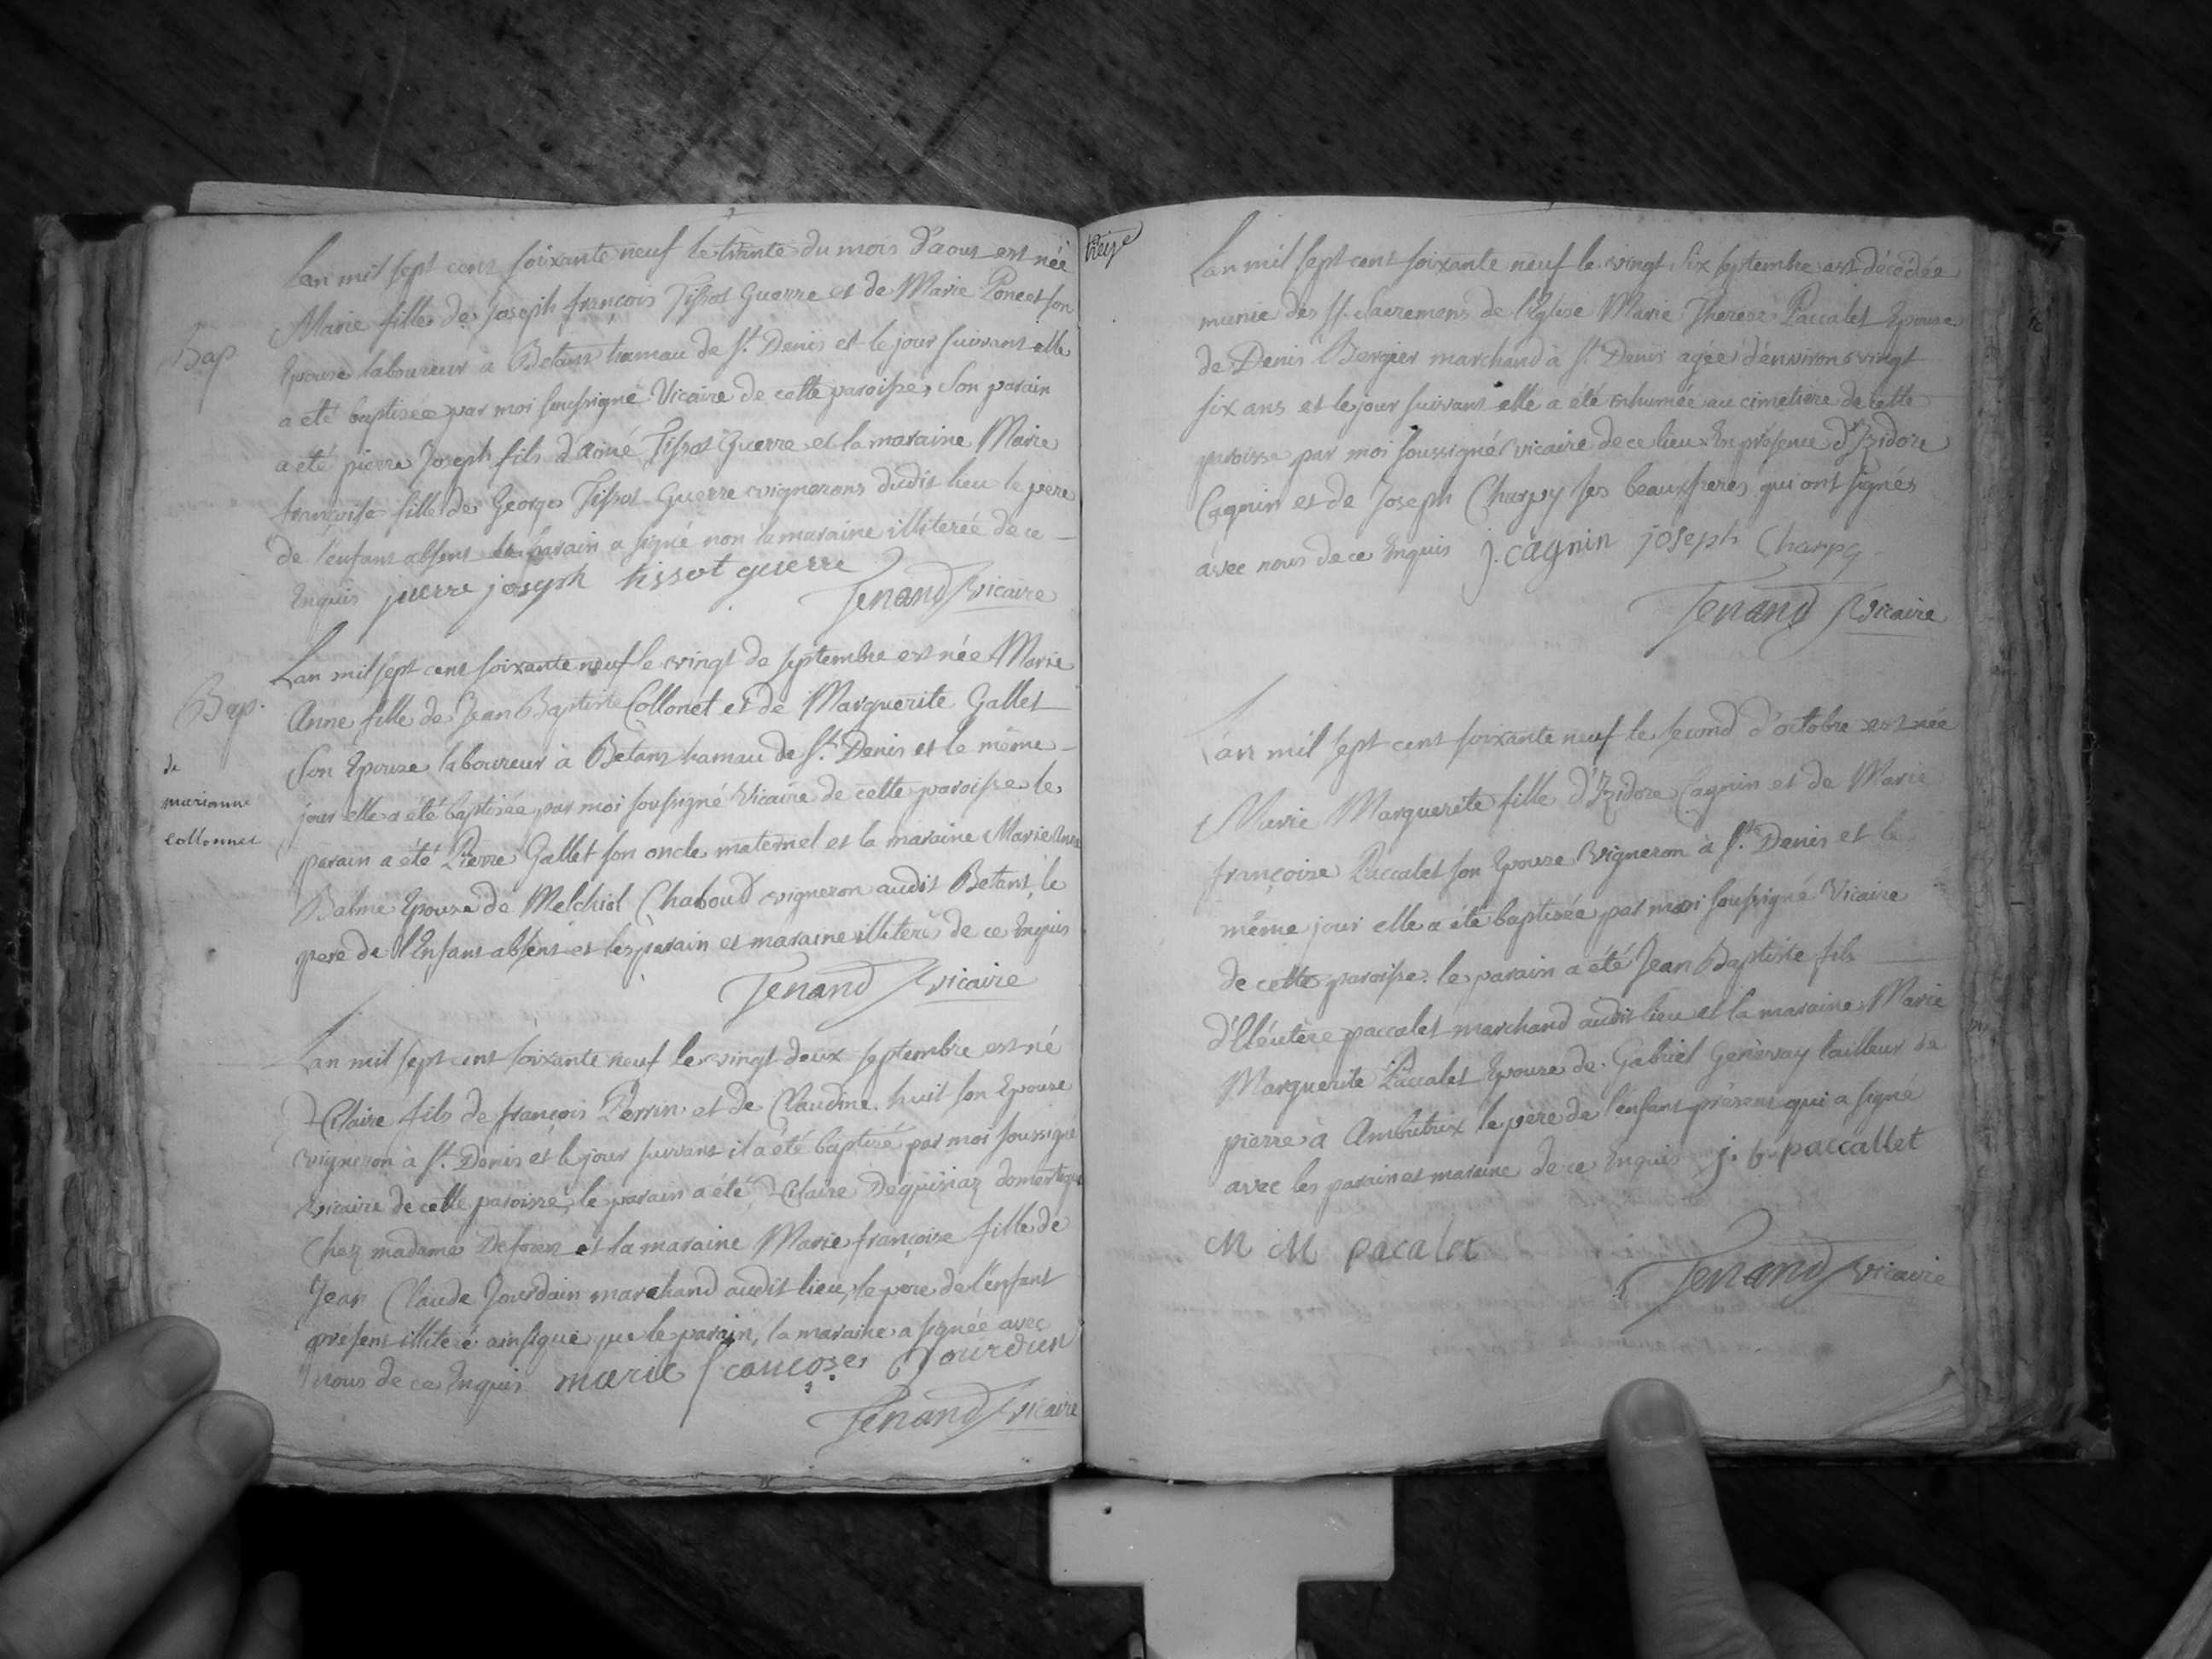 Lan mil sept cent soixante neuf le trente du mois d'aout est née
Marie fille de Joseph françois Tissot Guerre et de Marie Poncet son
Bap. Epouse laboureur à Betant hamau de St. Denis et le jour suivant elle
a été baptisée par moi soussigné Vicaire de cette paroisse, Son parain
a été pierre Joseph fils d'aimé Tissot Guerre et la maraine Marie
françoise fille de George Tissot Guerre vignerons dudit lieu le pere
de l'enfant absent le parain a signé non la maraine illiterée de ce
Enquis pierre joseph tissot guerre
Tenand Vicaire
Lan mil sept cent soixante neuf le vingt de septembre est née Marie
Bap. Anne fille de Jean Baptiste Collonet et de Marguerite Gallet
de marianne collonnet
Son Epouse laboureur à Betant hamau de St. Denis et le même
jour elle a été baptisée par moi soussigné Vicaire de cette paroisse le
parain a été Pierre Gallet son oncle maternel et la maraine Marie Anne
Balme Epouse de Melchiol Chaboud vigneron audit Betant, le
pere de l'Enfant absent et les parain et maraine illiterés de ce Enquis
Tenand Vicaire
Lan mil sept cent soixante neuf le vingt deux septembre est né
Hilaire fils de françois Perrin et de Claudine huit son Epouse
vigneron à St. Denis et le jour suivant il a été baptisé par moi soussigné
vicaire de cette paroisse, le parain a été Hilaire Dequisiaz domestique
Chez madame Deforez et la maraine Marie françoise fille de
Jean Claude Jourdain marchand audit lieu, le pere de l'enfant
present illiteré ainsique que le parain, la maraine a signée avec
nous de ce Enquis marie francose Jourdin
Tenand Vicaire
treize
Lan mil sept cent soixante neuf le vingt six septembre est décédée
munie des SS. Sacremens de l'Eglise Marie Therese Paccalet Epouse
de Denis Bergier marchand à St. Denis agée d'environ vingt
six ans et le jour suivant elle a été inhumée au cimetiere de cette
paroisse par moi soussigné vicaire de ce lieu En présence d'Izidore
Cagnin et de Joseph Charpy ses beauxfreres qui ont signés
avec nous de ce Enquis j. cagnin joseph Charpy
Tenand Vicaire
L'an mil sept cent soixante neuf le second d'octobre est née
Marie Marguerite fille d'Izidore Cagnin et de Marie
françoise Paccalet son Epouse Vigneron à St. Denis et le
même jour elle a été baptisée par moi soussigné Vicaire
de cette paroisse. le parain a été Jean Baptiste fils
d'Eléutère paccalet marchand audit lieu et la maraine Marie
Marguerite Paccalet Epouse de Gabriel Genevay tailleur de
pierre à Ambutrix le père de l'enfant présent qui a signé
avec les parain et maraine de ce Enquis j. b. paccallet
M M pacalet
Tenand Vicaire